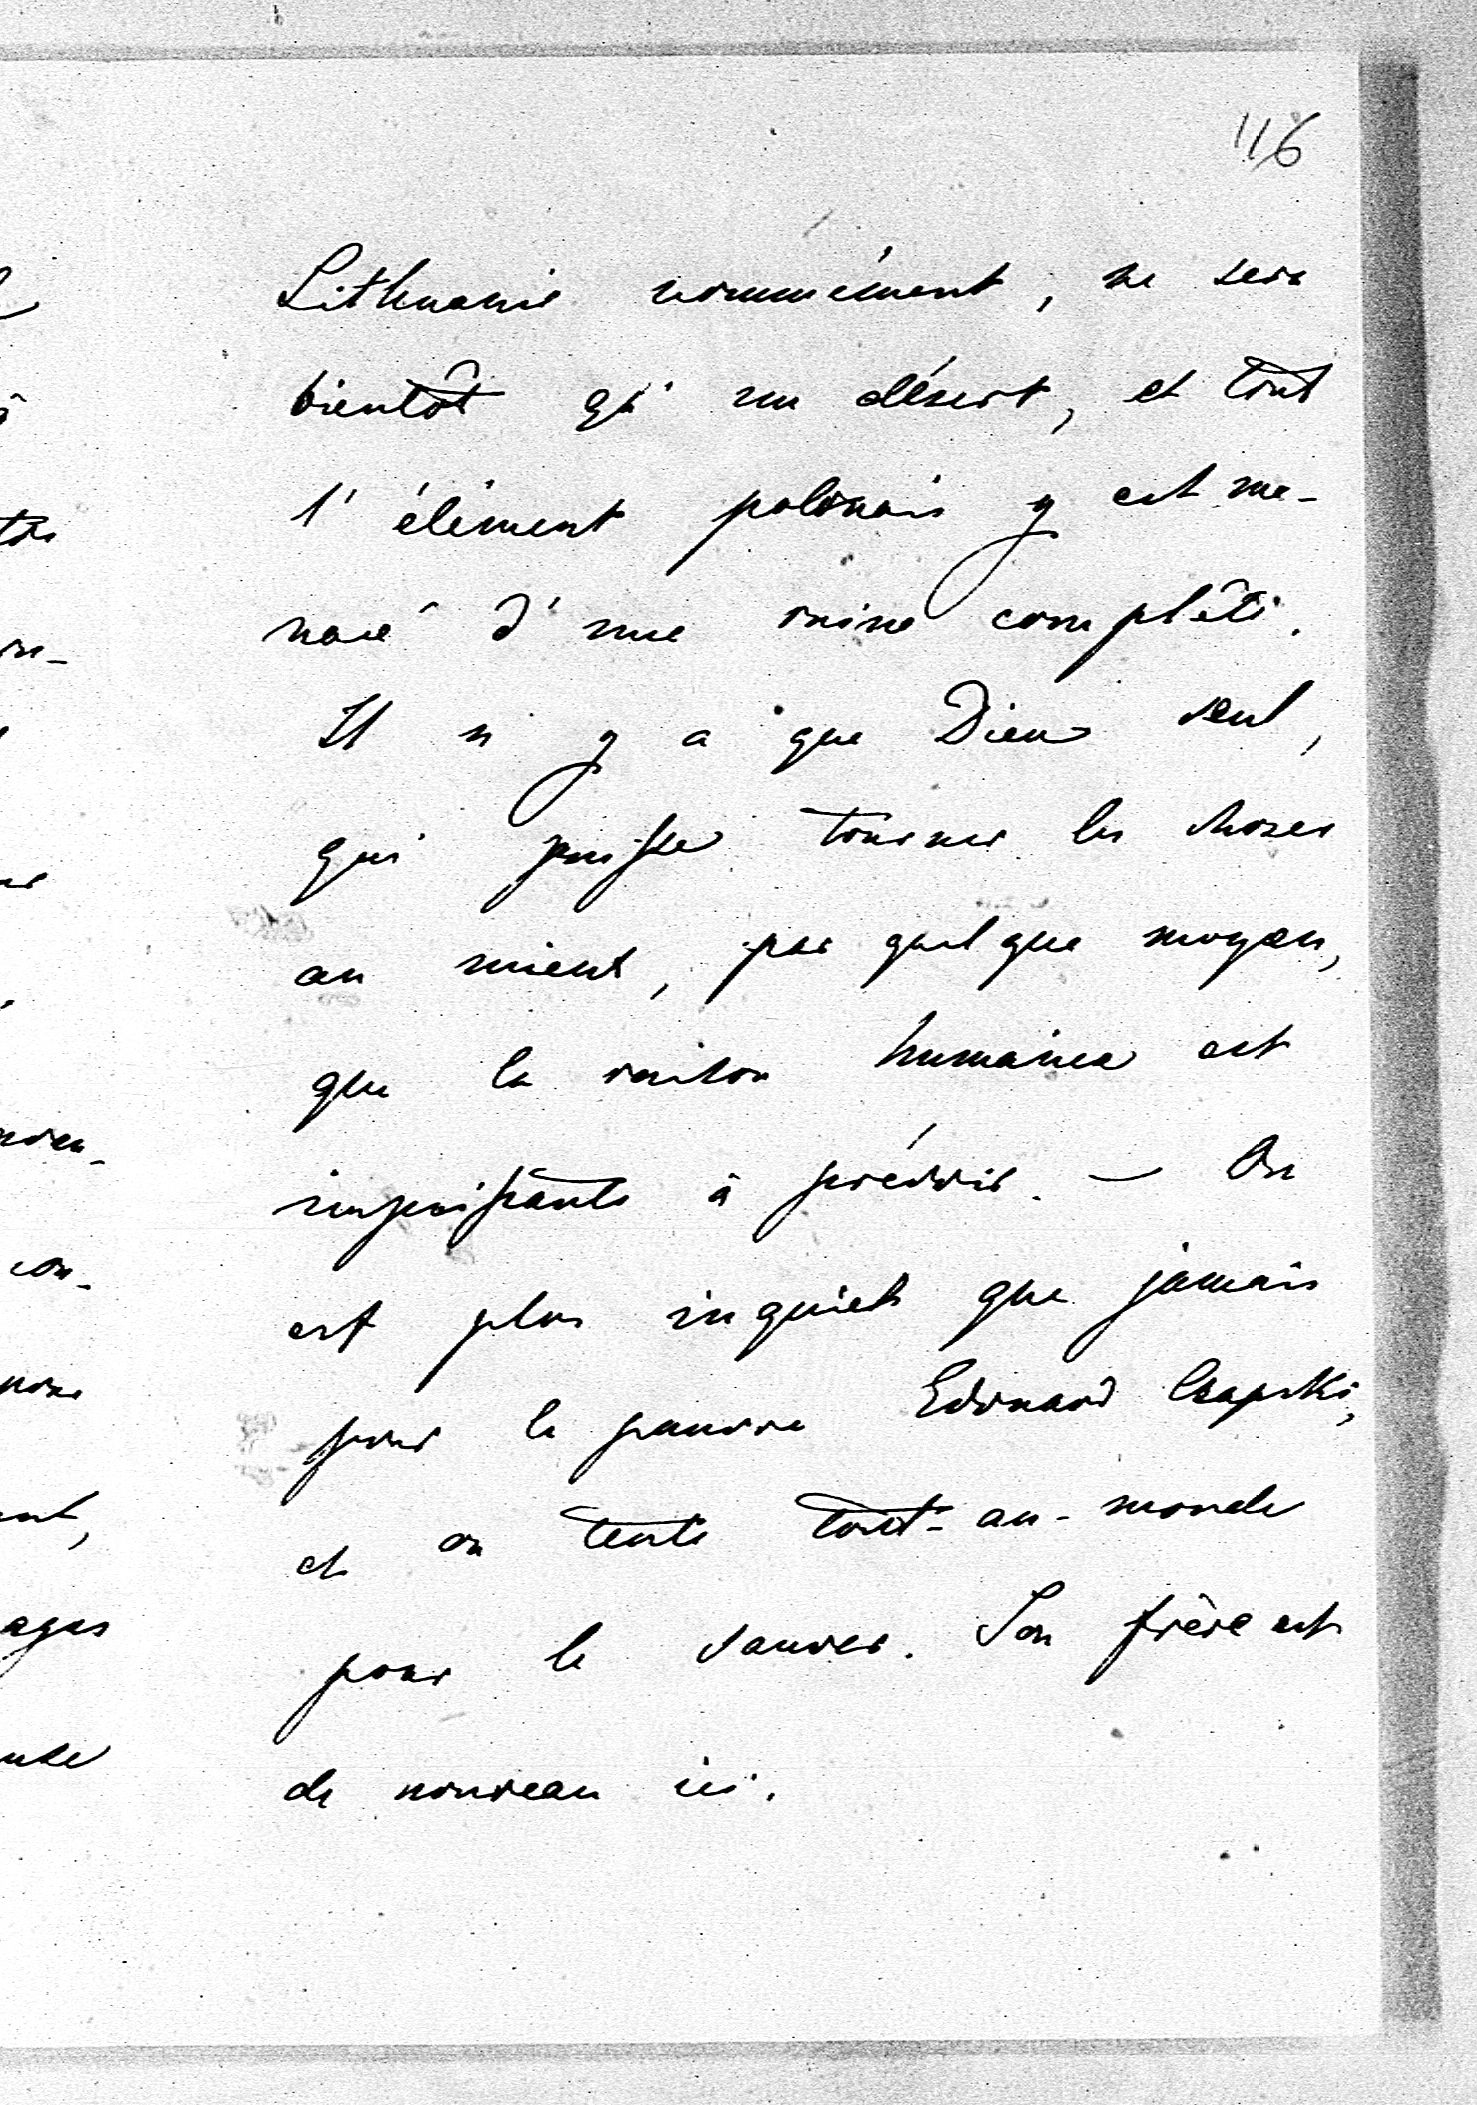 116
Lithuanie nommément, ne sera
bientôt qu'un désert, et tout
l'élément polonais y est me-
nacé d'une ruine complête.
Il n'y a que Dieu seul,
qui puisse tourner les choses
au mieux, par quelque moyen,
que la raison humaine est
impuissante à prédire. — On
est plus inquiet que jamais
pour le pauvre Edouard Czapski,
et on tente tout-au-monde
pour le sauver. Son frère est
de nouveau ici.